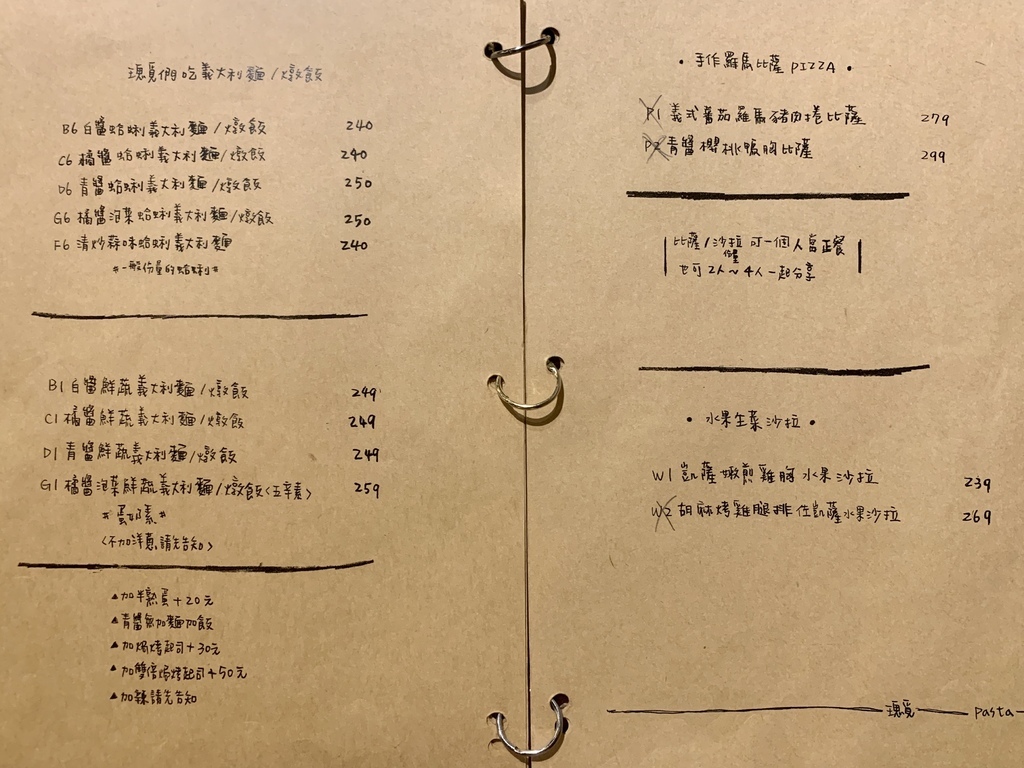 璁覓們吃義大利麵/燉飯
B6 白醬蛤蜊義大利麵/燉飯 240
C6 橘醬蛤蜊義大利麵/燉飯 240
D6 青醬蛤蜊義大利麵/燉飯 250
G6 橘醬泡菜蛤蜊義大利麵/燉飯 250
F6 清炒蒜味蛤蜊義大利麵 240
#一般份量的蛤蜊#
B1 白醬鮮蔬義大利麵/燉飯 249
C1 橘醬鮮蔬義大利麵/燉飯 249
D1 青醬鮮蔬義大利麵/燉飯 249
G1 橘醬泡菜鮮蔬義大利麵/燉飯<五辛素> 259
#蛋奶素#
<不加洋蔥,請先告知>
▲加半熟蛋+20元
▲青醬無加麵加飯
▲加焗烤起司+30元
▲加雙倍焗烤起司+50元
▲加辣請先告知
•手作羅馬比薩 PIZZA•
P1 義式番茄羅馬豬肉捲比薩 279
P2 青醬櫻桃鴨胸比薩 299
比薩/沙拉 可一個人當正餐
份量
也可2人~4人一起分享
•水果生菜沙拉•
W1 凱薩嫩煎雞胸水果沙拉 239
W2 胡麻烤雞腿排佐凱薩水果沙拉 269
璁覓 pasta